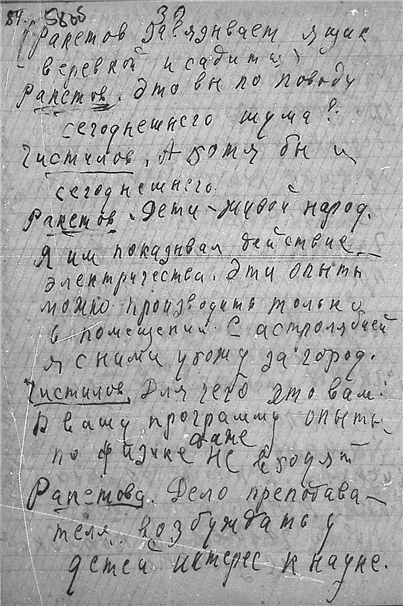 84. 5806 39
(Ракетов завязывает ящик
веревкой и садится)
Ракетов. Это вы по поводу
сегоднешнего шума?
Чистилов. А хотя бы и
сегоднешнего.
Ракетов. Дети – живой народ.
Я им показывал действие
электричества. Эти опыты
можно производить только
в помещении. С астролябией
я с ними ухожу за город.
Чистилов. Для чего это вам?
В вашу программу опыты
даже
по физике не входят
Ракетова. Дело преподава-
теля возбуждать у
детей интерес к науке.